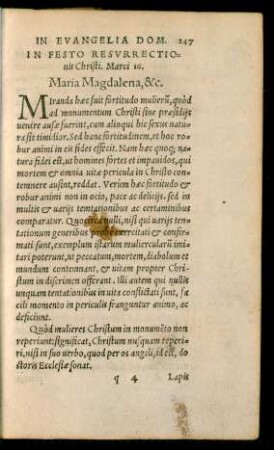 IN EVANGELIA DOM. 247
IN FESTO RESVRRECTIO=
nis Christi. Marci 16.
Maria Magdalena, &c.
Miranda hæc fuit fortitudo mulierũ, quòd
ad monumentum Christi sine præsidijs
venire ausæ fuerint, cum alioqui hic sexus natu=
ra sit timidior. Sed hanc fortitudinem, et hoc ro=
bur animi in eis fides effecit. Nam hæc quoq;
natura fidei est, ut homines fortes et impauidos, qui
mortem & omnia uitæ pericula in Christo con=
temnere ausint, reddat. Verùm hæc fortitudo &
robur animi non in ocio, pace ac delicijs, sed in
multis & uarijs tentationibus ac certaminibus
comparatur. Quomodo nulli, nisi qui uarijs ten=
tationum generibus probe exercitati & confir=
mati sunt, exemplum istarum muliercularũ imi=
tari poterunt, ut peccatum, mortem, diabolum et
mundum contennant, & uitam propter Chri=
stum in discrimen offerant. Illi autem qui nullis
unquam tentationibus in uita conflictati sunt, fa=
cilè momento in periculis franguntur animo, ac
deficiunt.
Quòd mulieres Christum in monumẽto non
reperiunt: significat, Christum nusquam reperi=
ri, nisi in suo uerbo, quod per os angeli, id est, do=
ctoris Ecclesiæ sonat.
q 4 Lapis